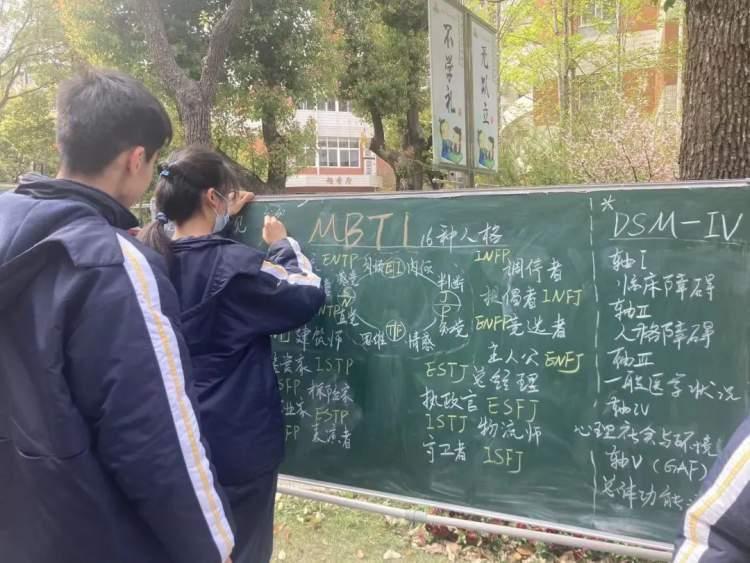 不学礼
无以立
MBTI 16种人格
ENTP 外倾 EI 内倾 INFP 调停者
感觉 判断 提倡者 INFJ
N 直觉 J P ENFP 竞选者
建筑师 思维 T/F 情感 主人公 ENFJ
ISTP ESTJ 总经理
探险家 执政官 ESFJ
ESTP ISTJ 物流师
表演者 守卫者 ISFJ
DSM-IV
轴I
临床障碍
轴II
人格障碍
轴III
一般医学状况
轴IV
心理社会与环境
轴V (GAF)
总体功能